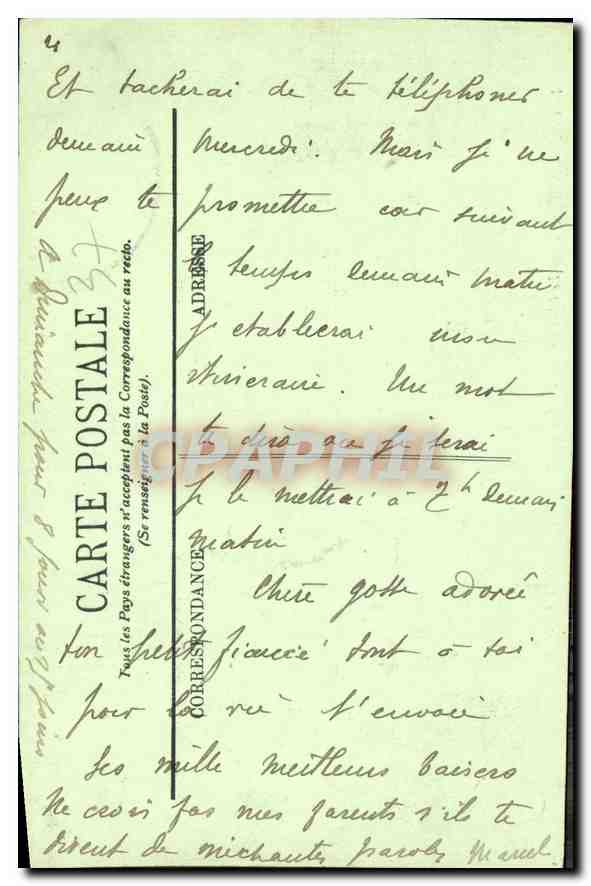 4
Et tacherai de te téléphoner
demain mercredi. Mais je ne
peux te promettre car suivant
le temps demain matin
je etablierai mon
itineraire. Un mot
te dira ou je serai
je le mettrai à 7h demain
matin
Chère gosse adorée
ton petit fiancé tout à toi
pour la vie t'envoie
ses mille meilleurs baisers
Ne crois pas mes parents s'ils te
disent de méchantes paroles Marcel
A Dimanche pour 8 jours
37
CARTE POSTALE
Tous les Pays étrangers n'acceptent pas la Correspondance au recto.
(Se renseigner à la Poste).
CORRESPONDANCE
ADRESSE
CPAPHIL